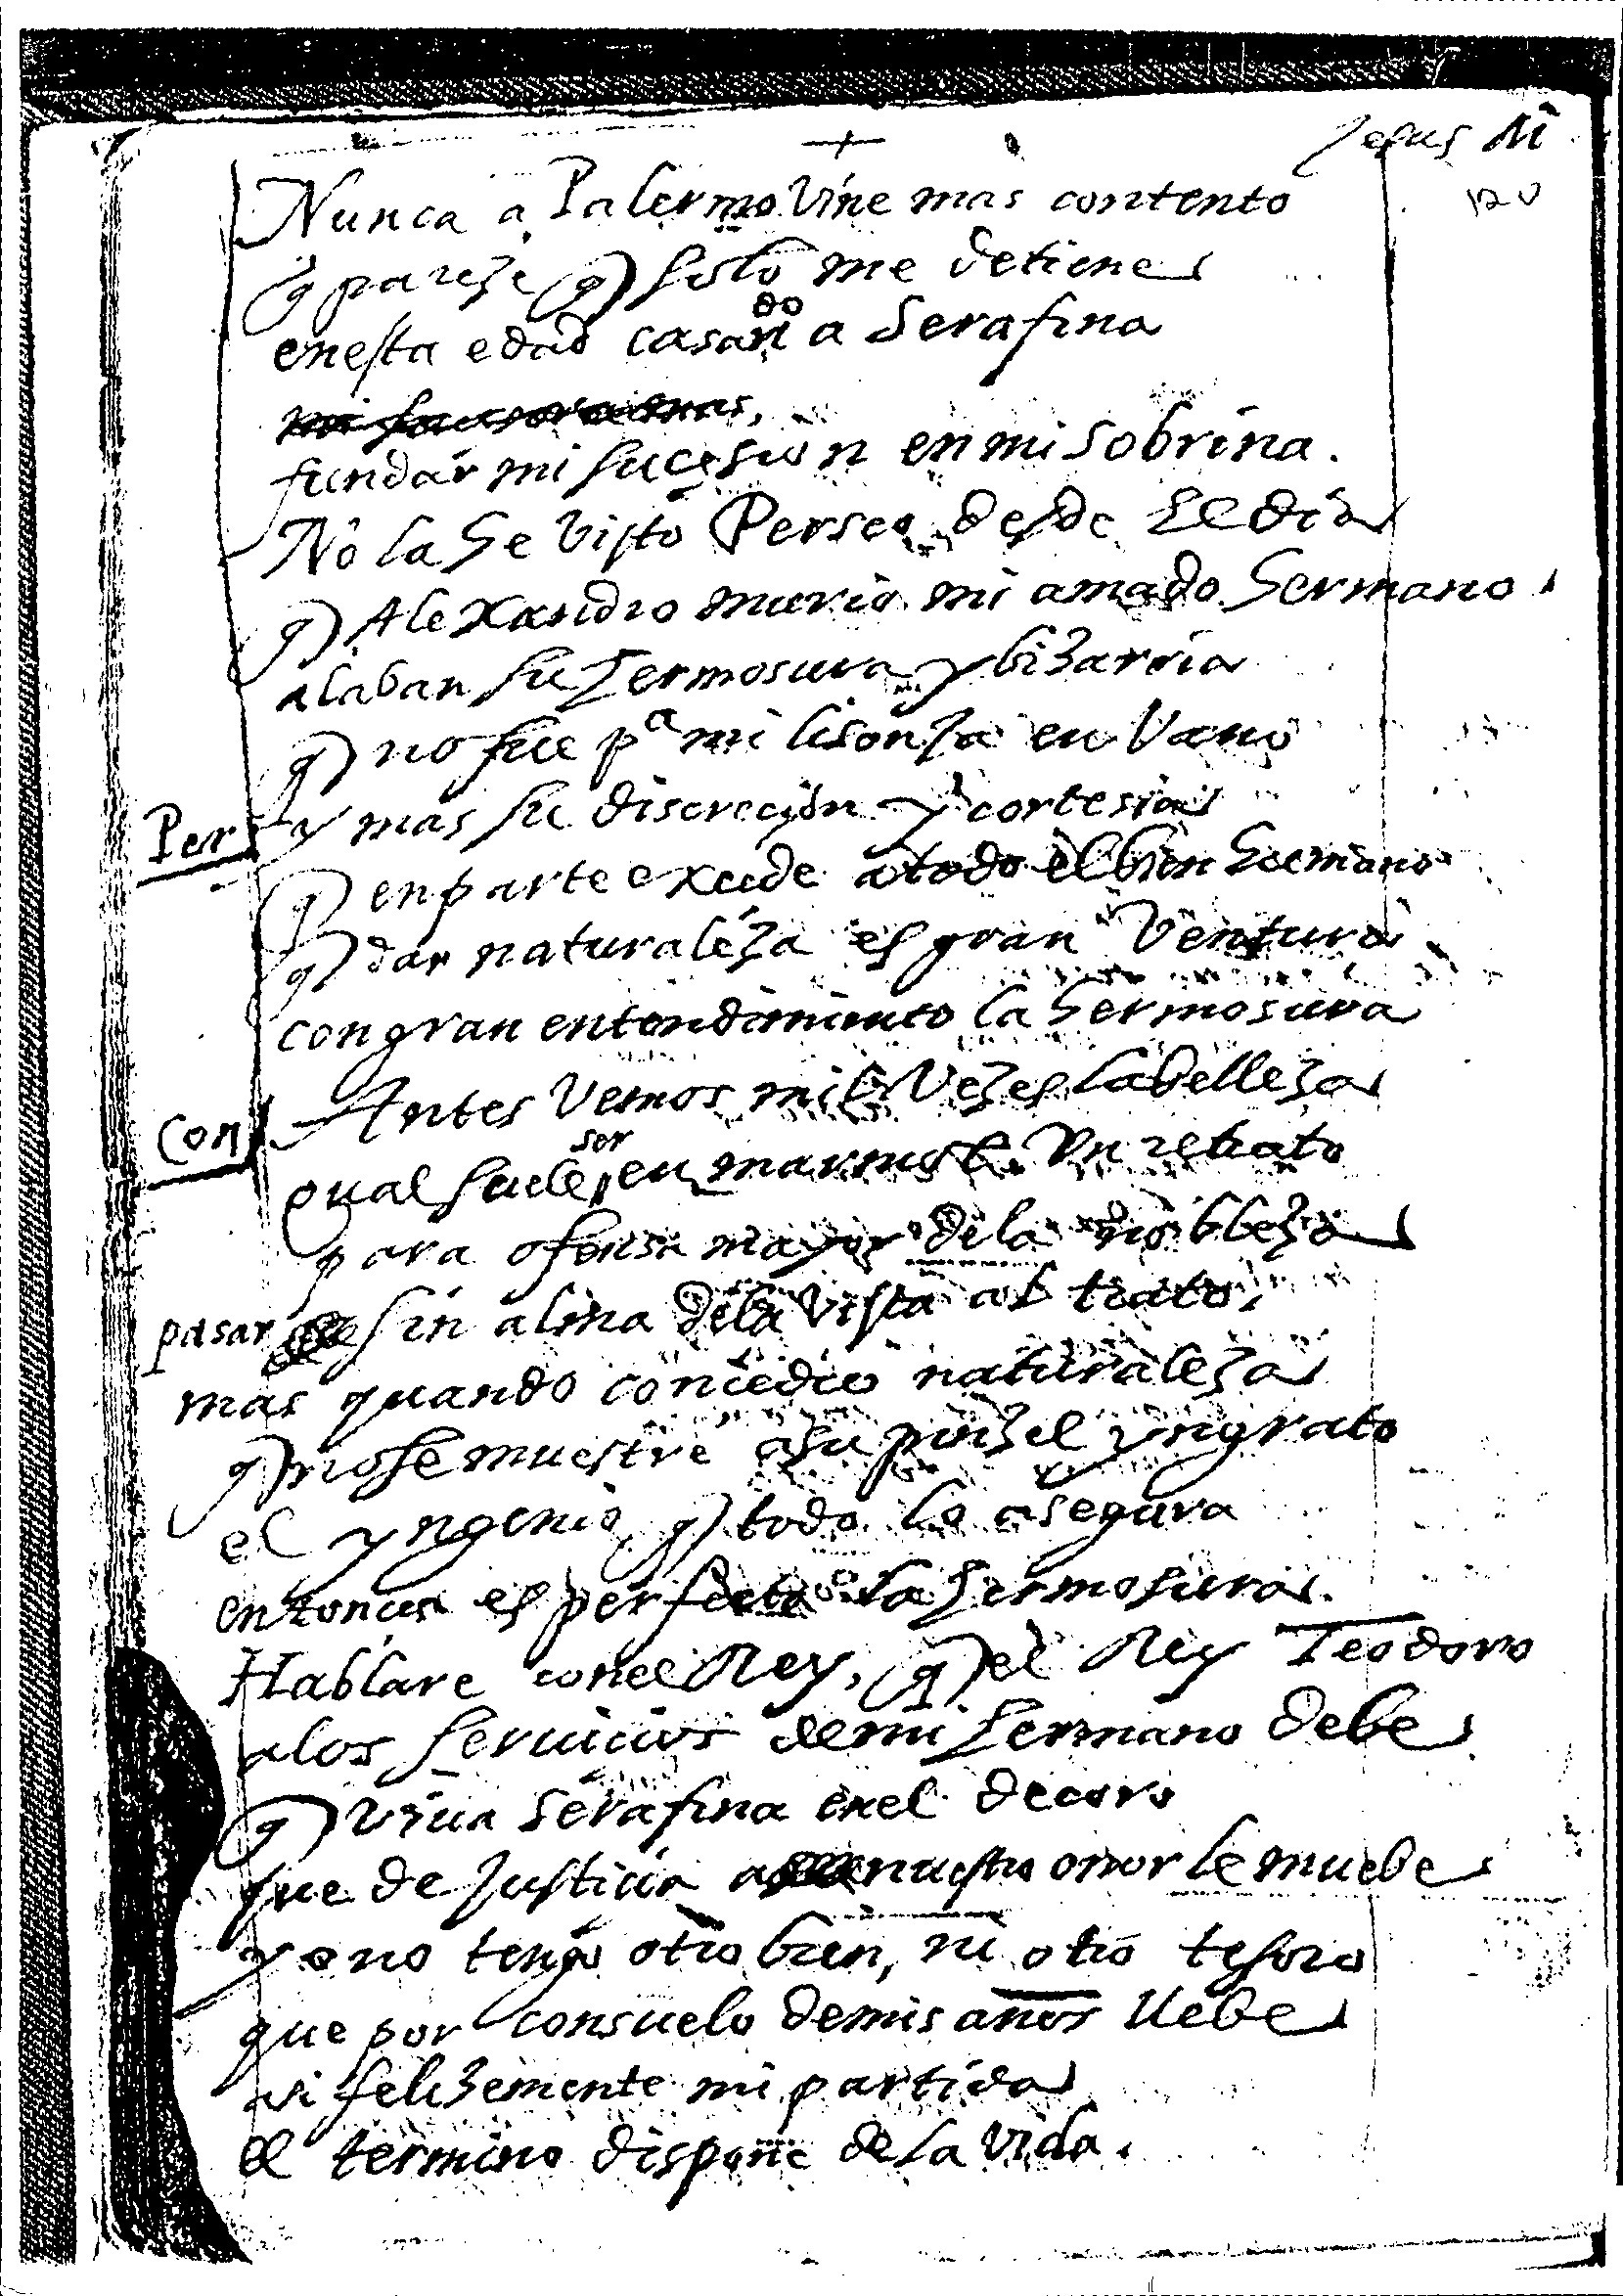 Jesus M
120
Nunca a Palermo Vine mas contento
q pareze q solo me detiene
en esta edad casando a Serafina
fundar mi sucesion en mi sobrina.
No la he visto Perseo desde el dia
q Alexandro murio mi amado hermano
alaban su hermosura y bizarria
q no fue pa mi lisonja en vano
y mas su discrecion y cortesia
Per
q en parte excede a todo el bien humano
q dar naturaleza es gran ventura
con gran entendimiento la hermosura
Con
Antes vemos mil vezes la belleza
qual suele ser en marmol un retrato
para ofensa mayor de la nobleza
pasar sin alma de la vista al trato,
mas quando concedio naturaleza
q no se muestre a su pinzel yngrato
el yngenio q todo lo asegura
entonces es perfecta la hermosura.
Hablare con el Rey, q el Rey Teodoro
a los seruicios de mi hermano debe
q viua Serafina en el decoro
que de justicia a nuestro onor le muebe
yo no tengo otro bien, ni otro tesoro
que por consuelo de mis años llebe
asi felizemente mi partida
el termino dispone de la vida.